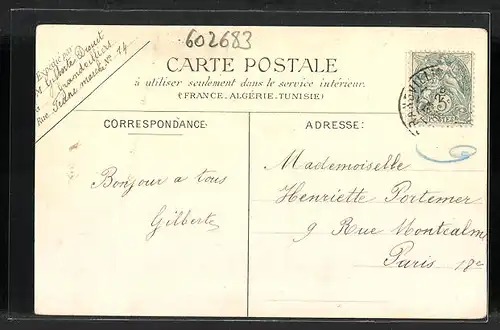 602683
Expéditeur
M Gilberte Diguet
à Grandvilliers
Rue No 14
CARTE POSTALE
à utiliser seulement dans le service intérieur.
(FRANCE, ALGÉRIE, TUNISIE)
CORRESPONDANCE.
ADRESSE:
Bonjour a tous
Gilberte
Mademoiselle
Henriette Portemer
9 Rue Montcalm
Paris 18e